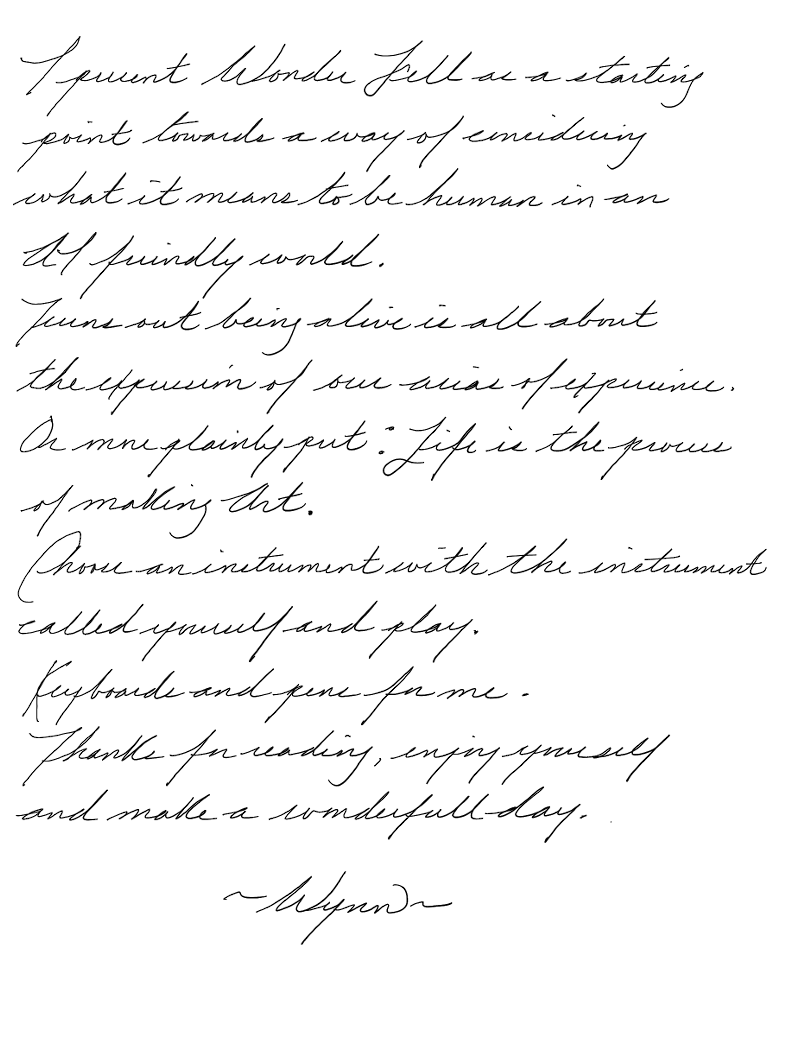 I present Wonder Fell as a starting
point towards a way of considering
what it means to be human in an
AI friendly world.
Turns out being alive is all about
the expression of our areas of experience.
Or more plainly put: Life is the process
of making Art.
Choose an instrument with the instrument
called yourself and play.
Keyboards and pens for me.
Thanks for reading, enjoy yourself
and make a wonderfull day.
~Wynn~